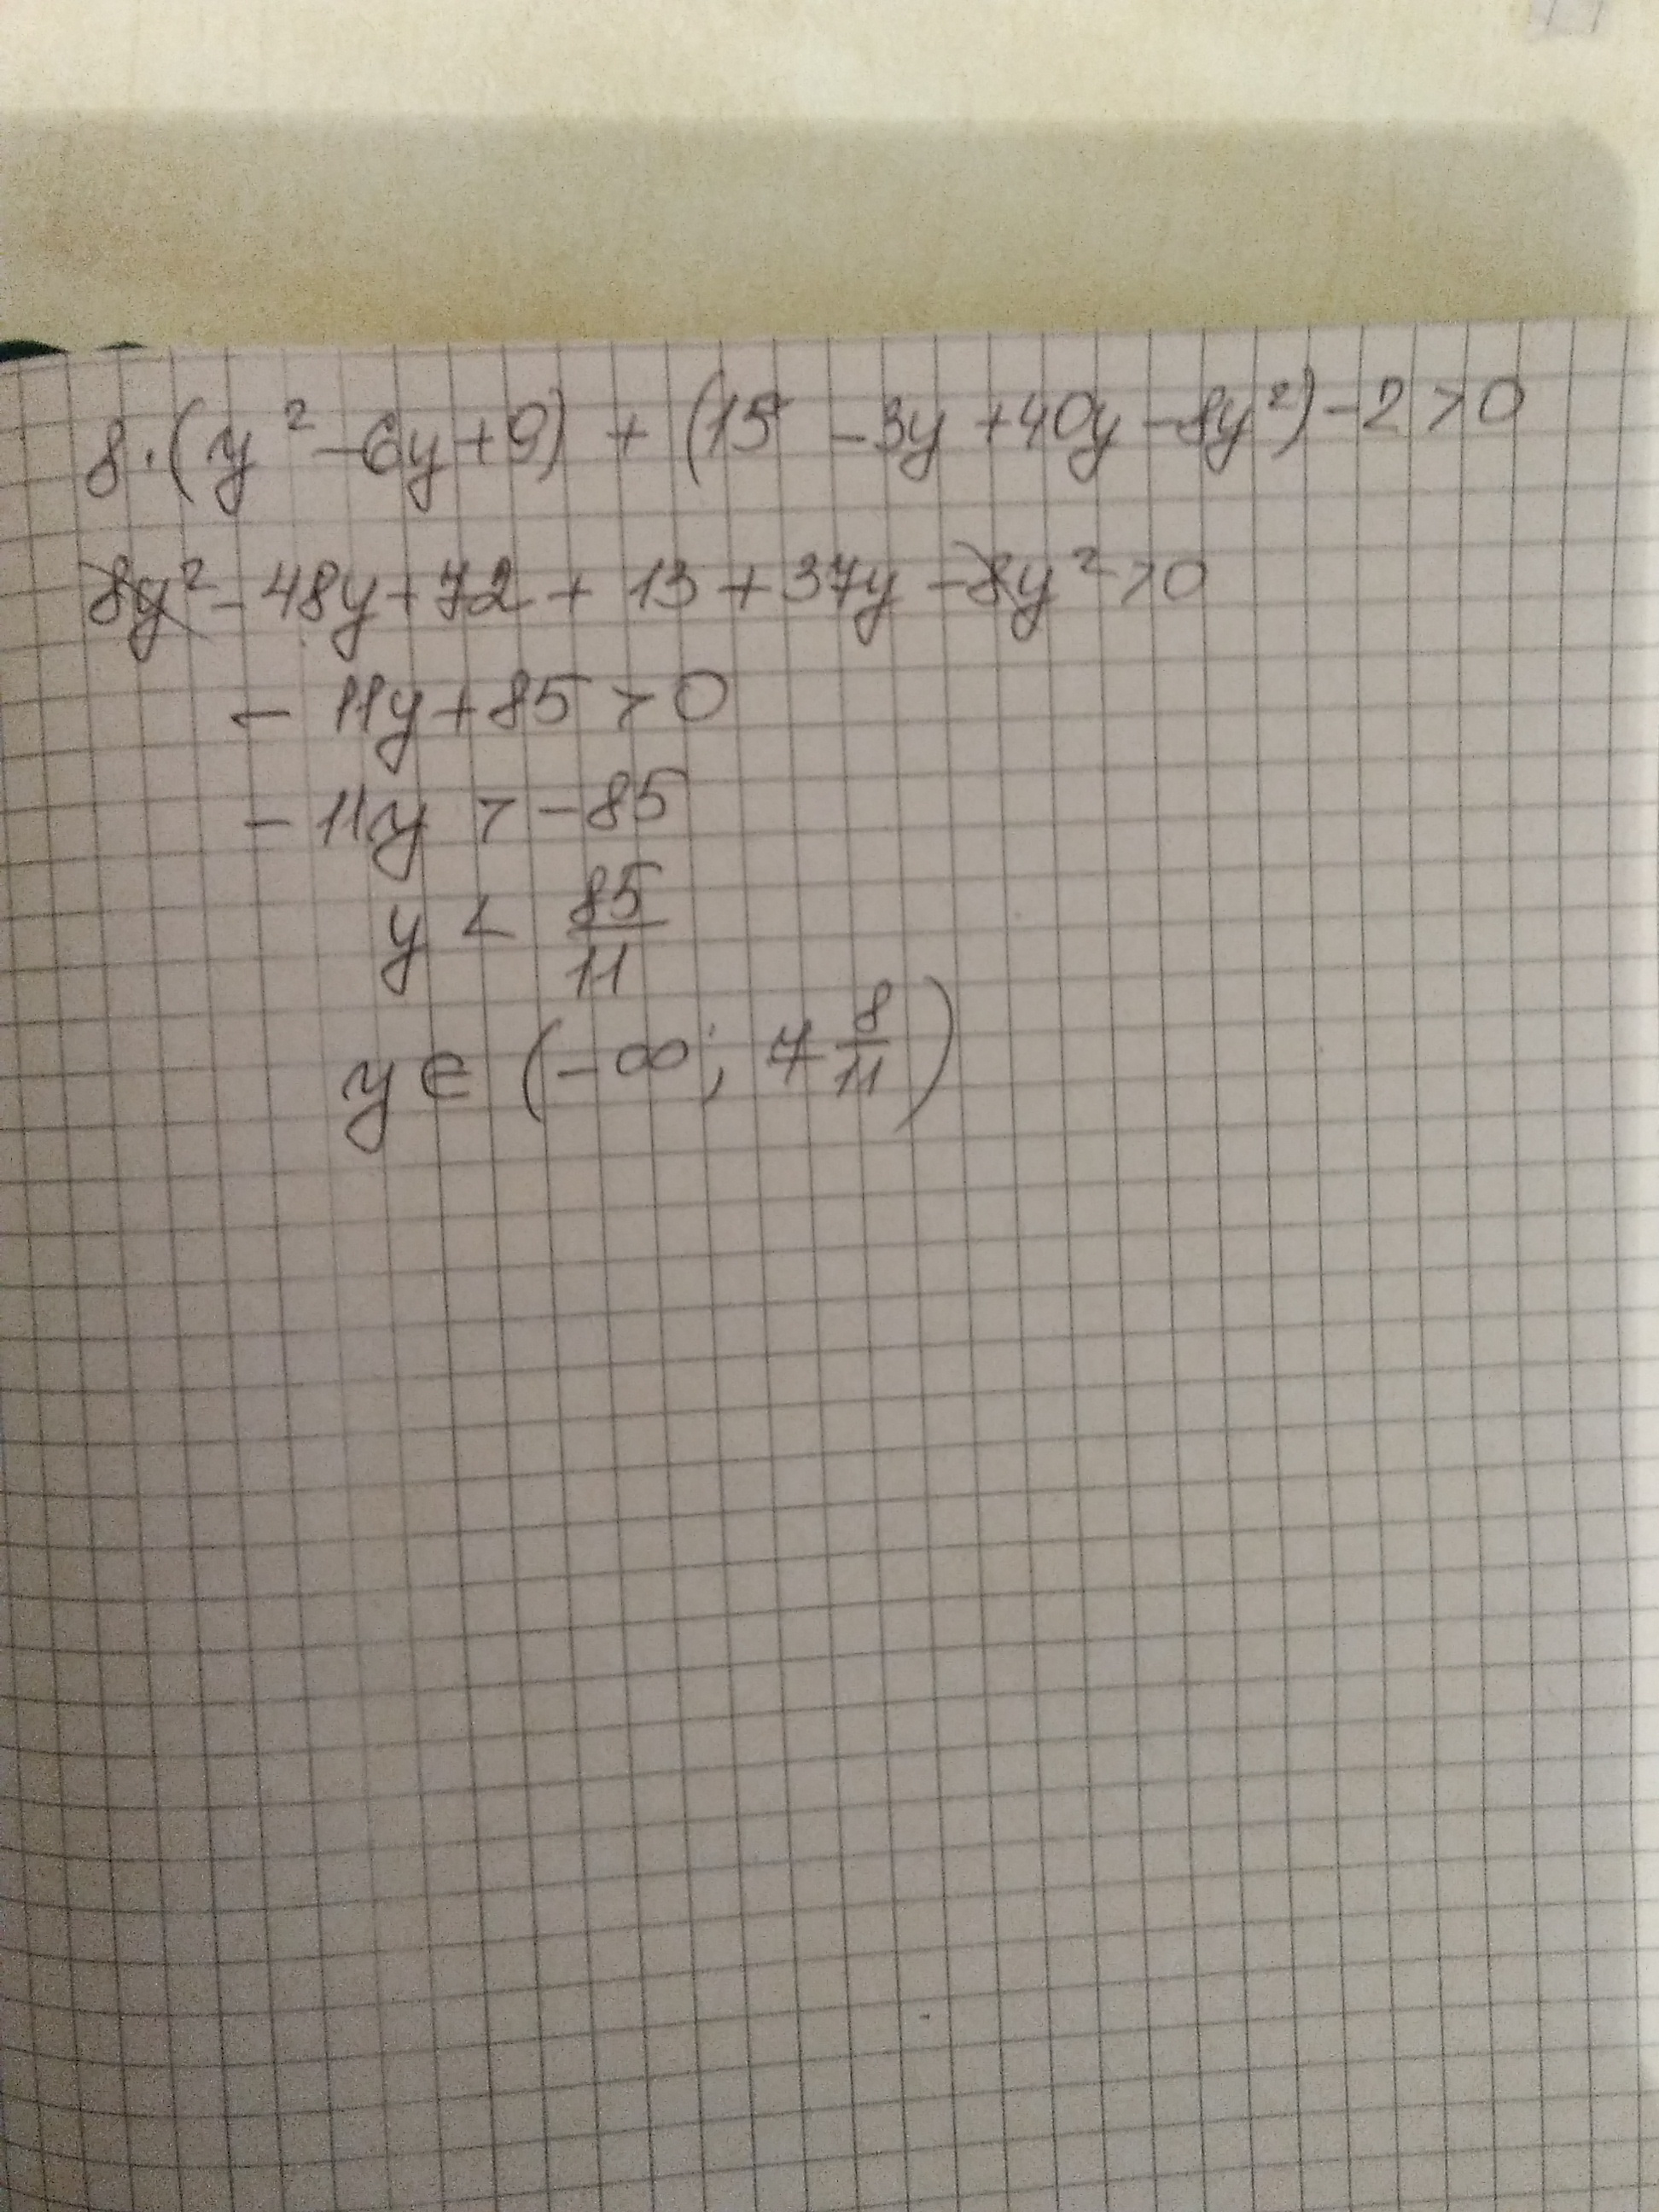 8·(y²-6y+9) + (15 -3y +40y -8y²) -2 >0
8y² - 48y + 72 + 13 + 37y - 8y² >0
- 11y + 85 > 0
- 11y > -85
y < 85/11
y ∈ (-∞; 7 8/11)